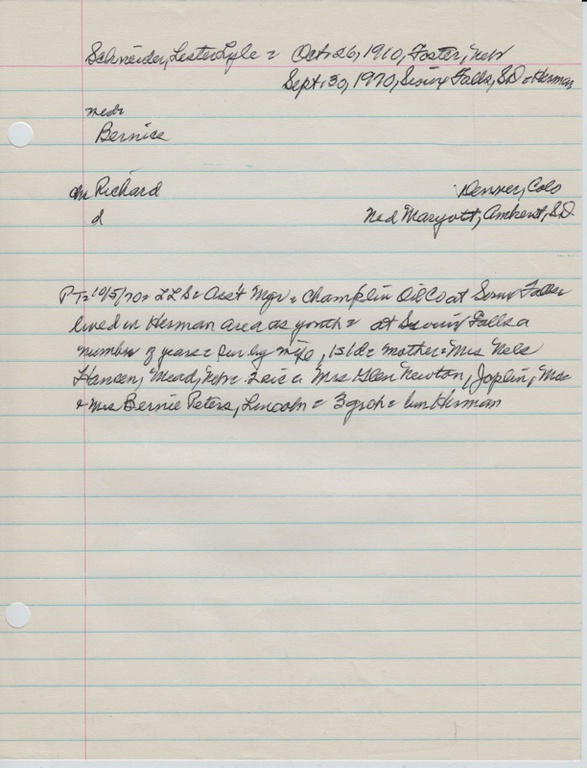 Schneider, Lester Lyle = Oct. 26, 1910, Foster, Nebr
Sept. 30, 1970, Sioux Falls, SD = Herman
md =
Bernice
ch Richard
Denver, Colo
d
Ned Maryott, Amherst, S.D.
PT = 10/5/70 = LLS = Ass't Mgr = Champlin Oil Co at Sioux Falls
lived in Herman area as youth = at Sioux Falls a
number of years = sur by wife, 1s 1d = mother = Mrs Nels
Hansen, Mead, Nebr = Mrs Glen Newton, Joplin, Mo =
& Mrs Bernie Peters, Lincoln = 3 grch = bur Herman